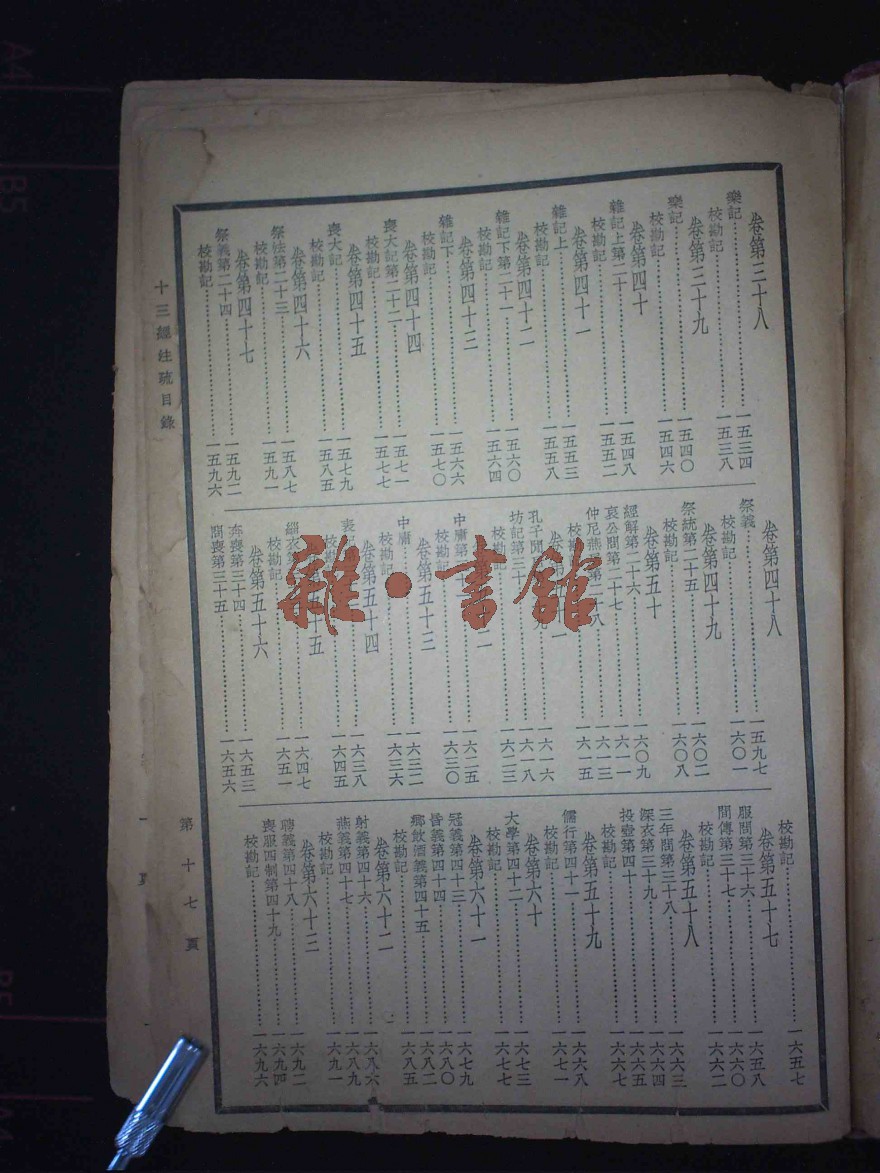 卷第三十八
樂記……一五三四
校勘記……一五三八
卷第三十九
樂記……一五四〇
校勘記……一五四六
卷第四十
雜記上第二十……一五四八
校勘記……一五五二
卷第四十一
雜記上……一五五三
校勘記……一五五八
卷第四十二
雜記下第二十一……一五六〇
校勘記……一五六四
卷第四十三
雜記下……一五六六
校勘記……一五七〇
卷第四十四
喪大記第二十二……一五七一
校勘記……一五七七
卷第四十五
喪大記……一五七九
校勘記……一五八五
卷第四十六
祭法第二十三……一五八七
校勘記……一五九一
卷第四十七
祭義第二十四……一五九二
校勘記……一五九六
卷第四十八
祭義……一五九七
校勘記……一六〇一
卷第四十九
祭統第二十五……一六〇二
校勘記……一六〇八
卷第五十
經解第二十六……一六〇九
哀公問第二十七……一六一一
仲尼燕……第……八……一六一三
校勘……一六一五
卷……一
孔子閒……九……一六一六
坊記第三十……一六一八
校勘……一六二三
二
中庸第……一六二五
校勘記……一六三〇
卷第五十三
中庸……一六三二
校勘記……一六三六
卷第五十四
表記……一六三八
校……一六四五
五十五
緇衣……一六四七
校勘記……一六五一
卷第五十六
奔喪第三十四……一六五三
問喪第三十五……一六五六
校勘記……一六五七
卷第五十七
服問第三十六……一六五八
間傳第三十七……一六六〇
校勘記……一六六二
卷第五十八
三年問第三十八……一六六三
深衣第三十九……一六六四
投壺第四十……一六六五
校勘記……一六六七
卷第五十九
儒行第四十一……一六六八
校勘記……一六七一
卷第六十
大學第四十二……一六七三
校勘記……一六七七
卷第六十一
冠義第四十三……一六七九
昏義第四十四……一六八〇
鄉飲酒義第四十五……一六八二
校勘記……一六八五
卷第六十二
射義第四十六……一六八六
燕義第四十七……一六八九
校勘記……一六九一
卷第六十三
聘義第四十八……一六九二
喪服四制第四十九……一六九四
校勘記……一六九六
十三經注疏目錄
第十七頁
雜·書館